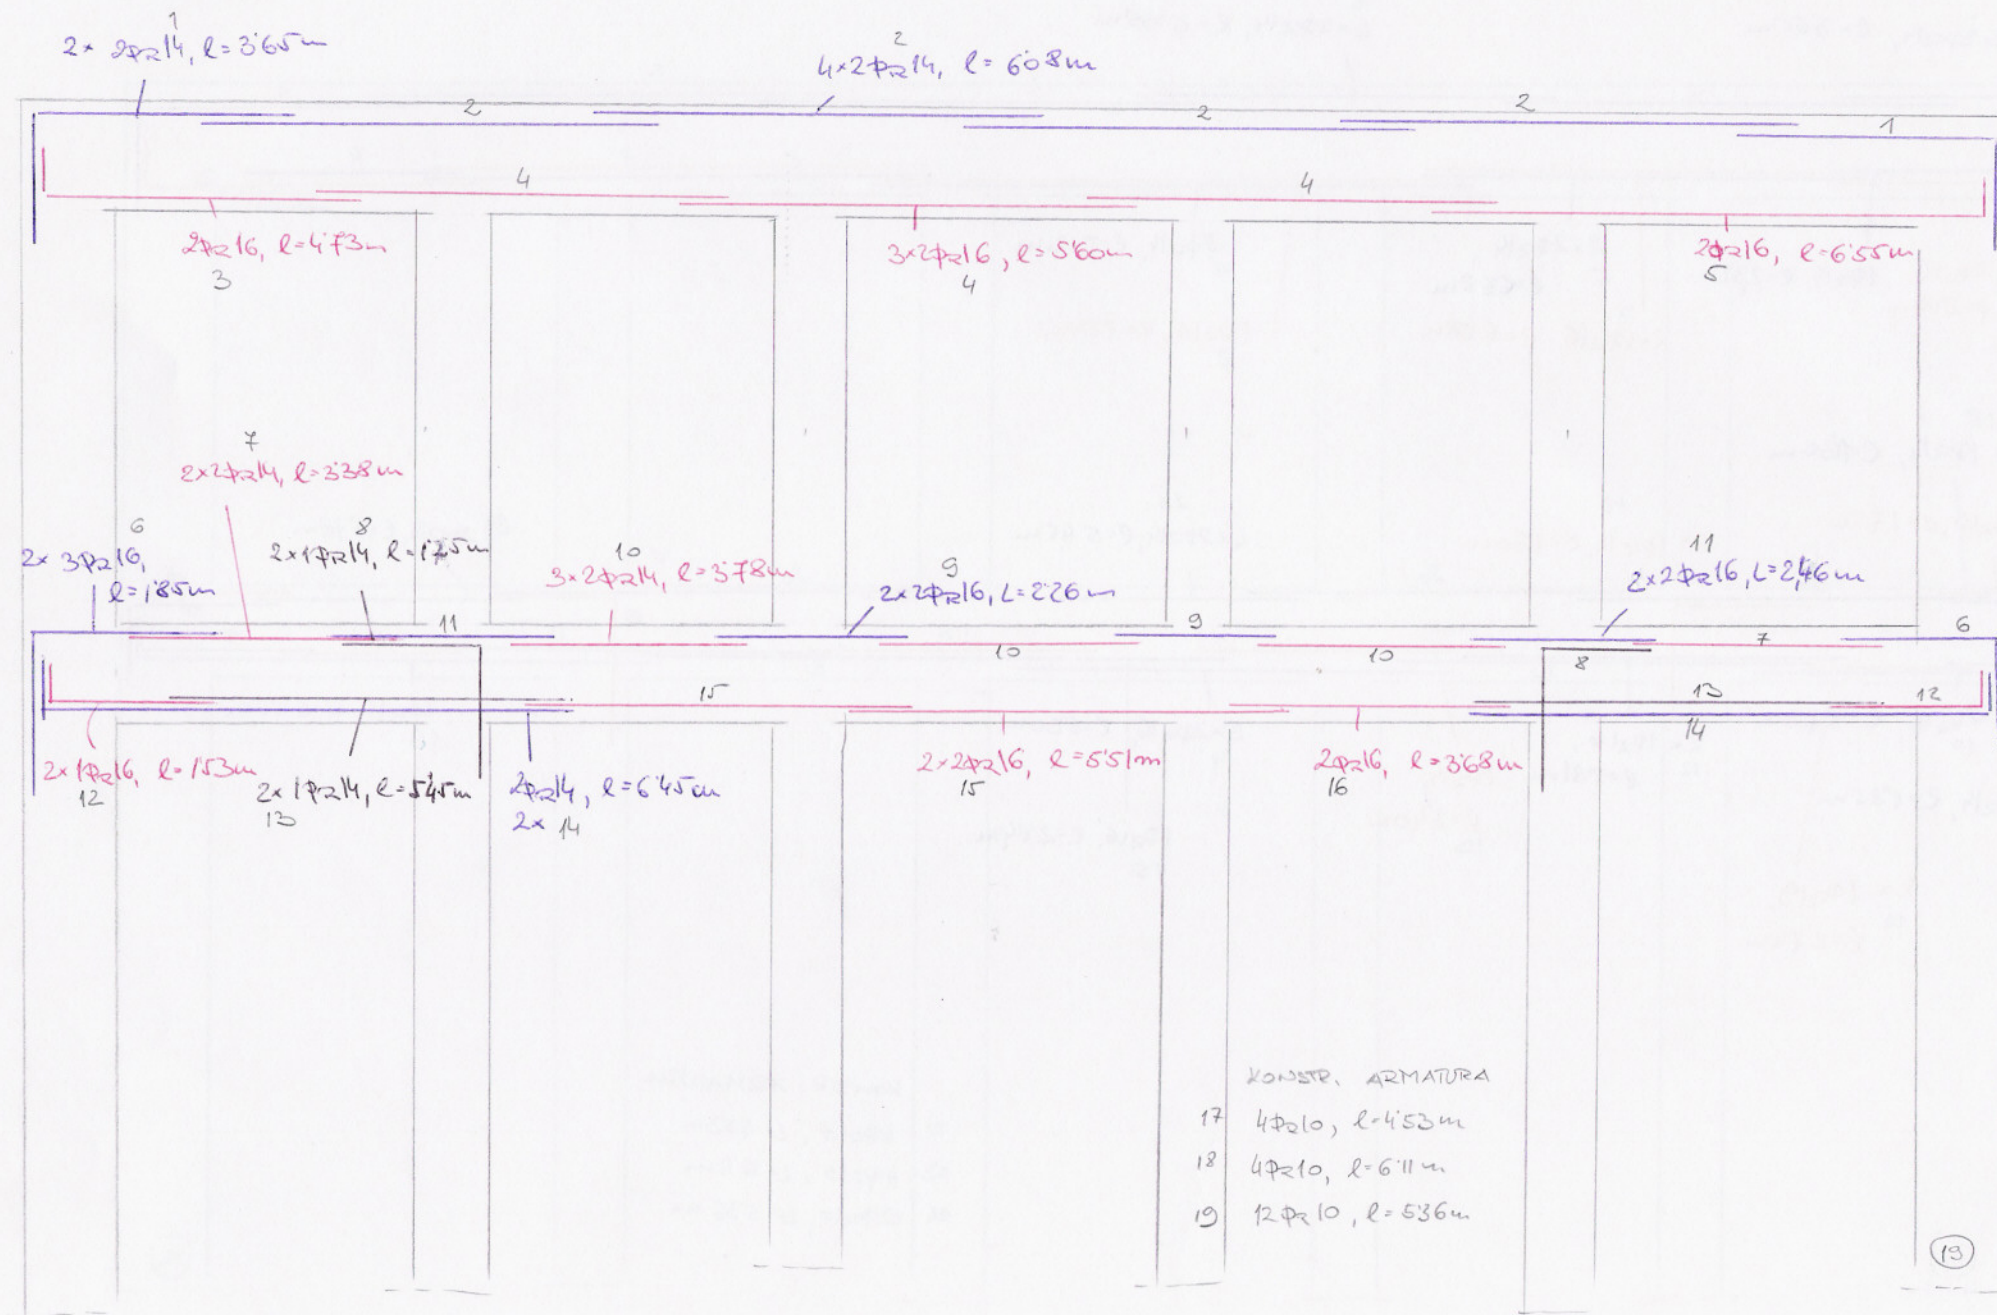 1
2× 2ΦR14, l=3'65m
2
4×2ΦR14, l=6'08m
2
2
2
1
4
4
2ΦR16, l=4'73m
3
3×2ΦR16, l=5'60m
4
2ΦR16, l=6'55m
5
7
2×2ΦR14, l=3'38m
6
2× 3ΦR16,
l=1'85m
8
2×1ΦR14, l=
10
3×2ΦR14, l=3'78m
9
2×2ΦR16, L=2'26m
11
2×2ΦR16, L=2,46m
11
9
6
7
10
10
8
15
13
12
14
2×1ΦR16, l=1'53m
12
2×1ΦR14, l=5'45m
13
2ΦR14, l=6'45m
2× 14
2×2ΦR16, l=5'51m
15
2ΦR16, l=3'68m
16
KONSTR. ARMATURA
17 4ΦR10, l=4'53m
18 4ΦR10, l=6'11m
19 12ΦR10, l=5'36m
19